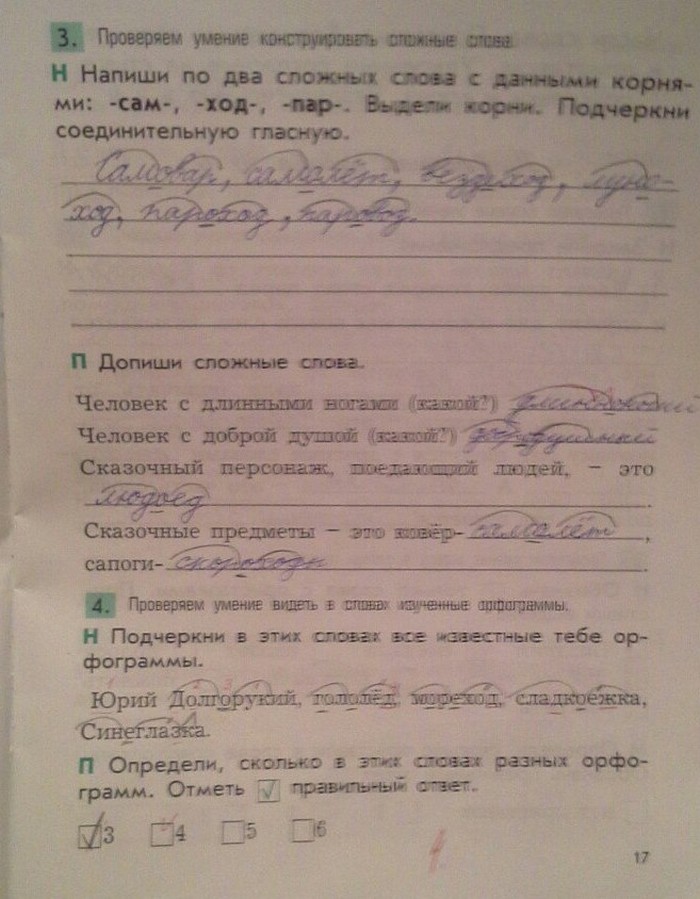 3. Проверяем умение конструировать сложные слова.
Н Напиши по два сложных слова с данными корня-
ми: -сам-, -ход-, -пар-. Выдели корни. Подчеркни
соединительную гласную.
Самовар, самолёт, вездеход, луно-
ход, пароход, паровоз.
П Допиши сложные слова.
Человек с длинными ногами (какой?)
Человек с доброй душой (какой?) добродушный
Сказочный персонаж, поедающий людей, – это
людоед
Сказочные предметы – это ковёр- самолёт ,
сапоги- скороходы .
4. Проверяем умение видеть в словах изученные орфограммы.
Н Подчеркни в этих словах все известные тебе ор-
фограммы.
Юрий Долгорукий, гололёд, мореход, сладкоежка,
Синеглазка.
П Определи, сколько в этих словах разных орфо-
грамм. Отметь √ правильный ответ.
3 4 5 6
17